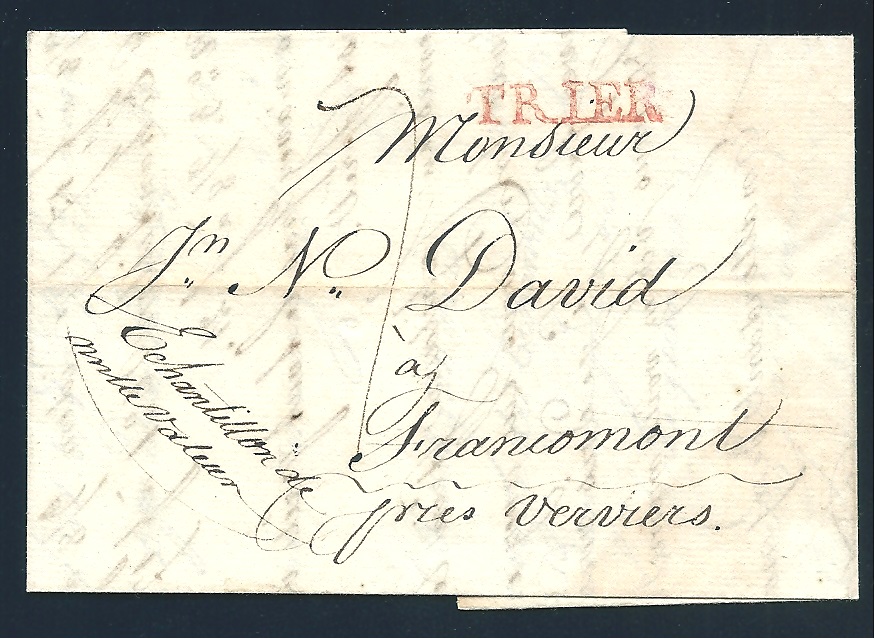 TRIER
Monsieur
Jn. No. David
à
Francomont
près Verviers.
Echantillon de
nulle Valeur